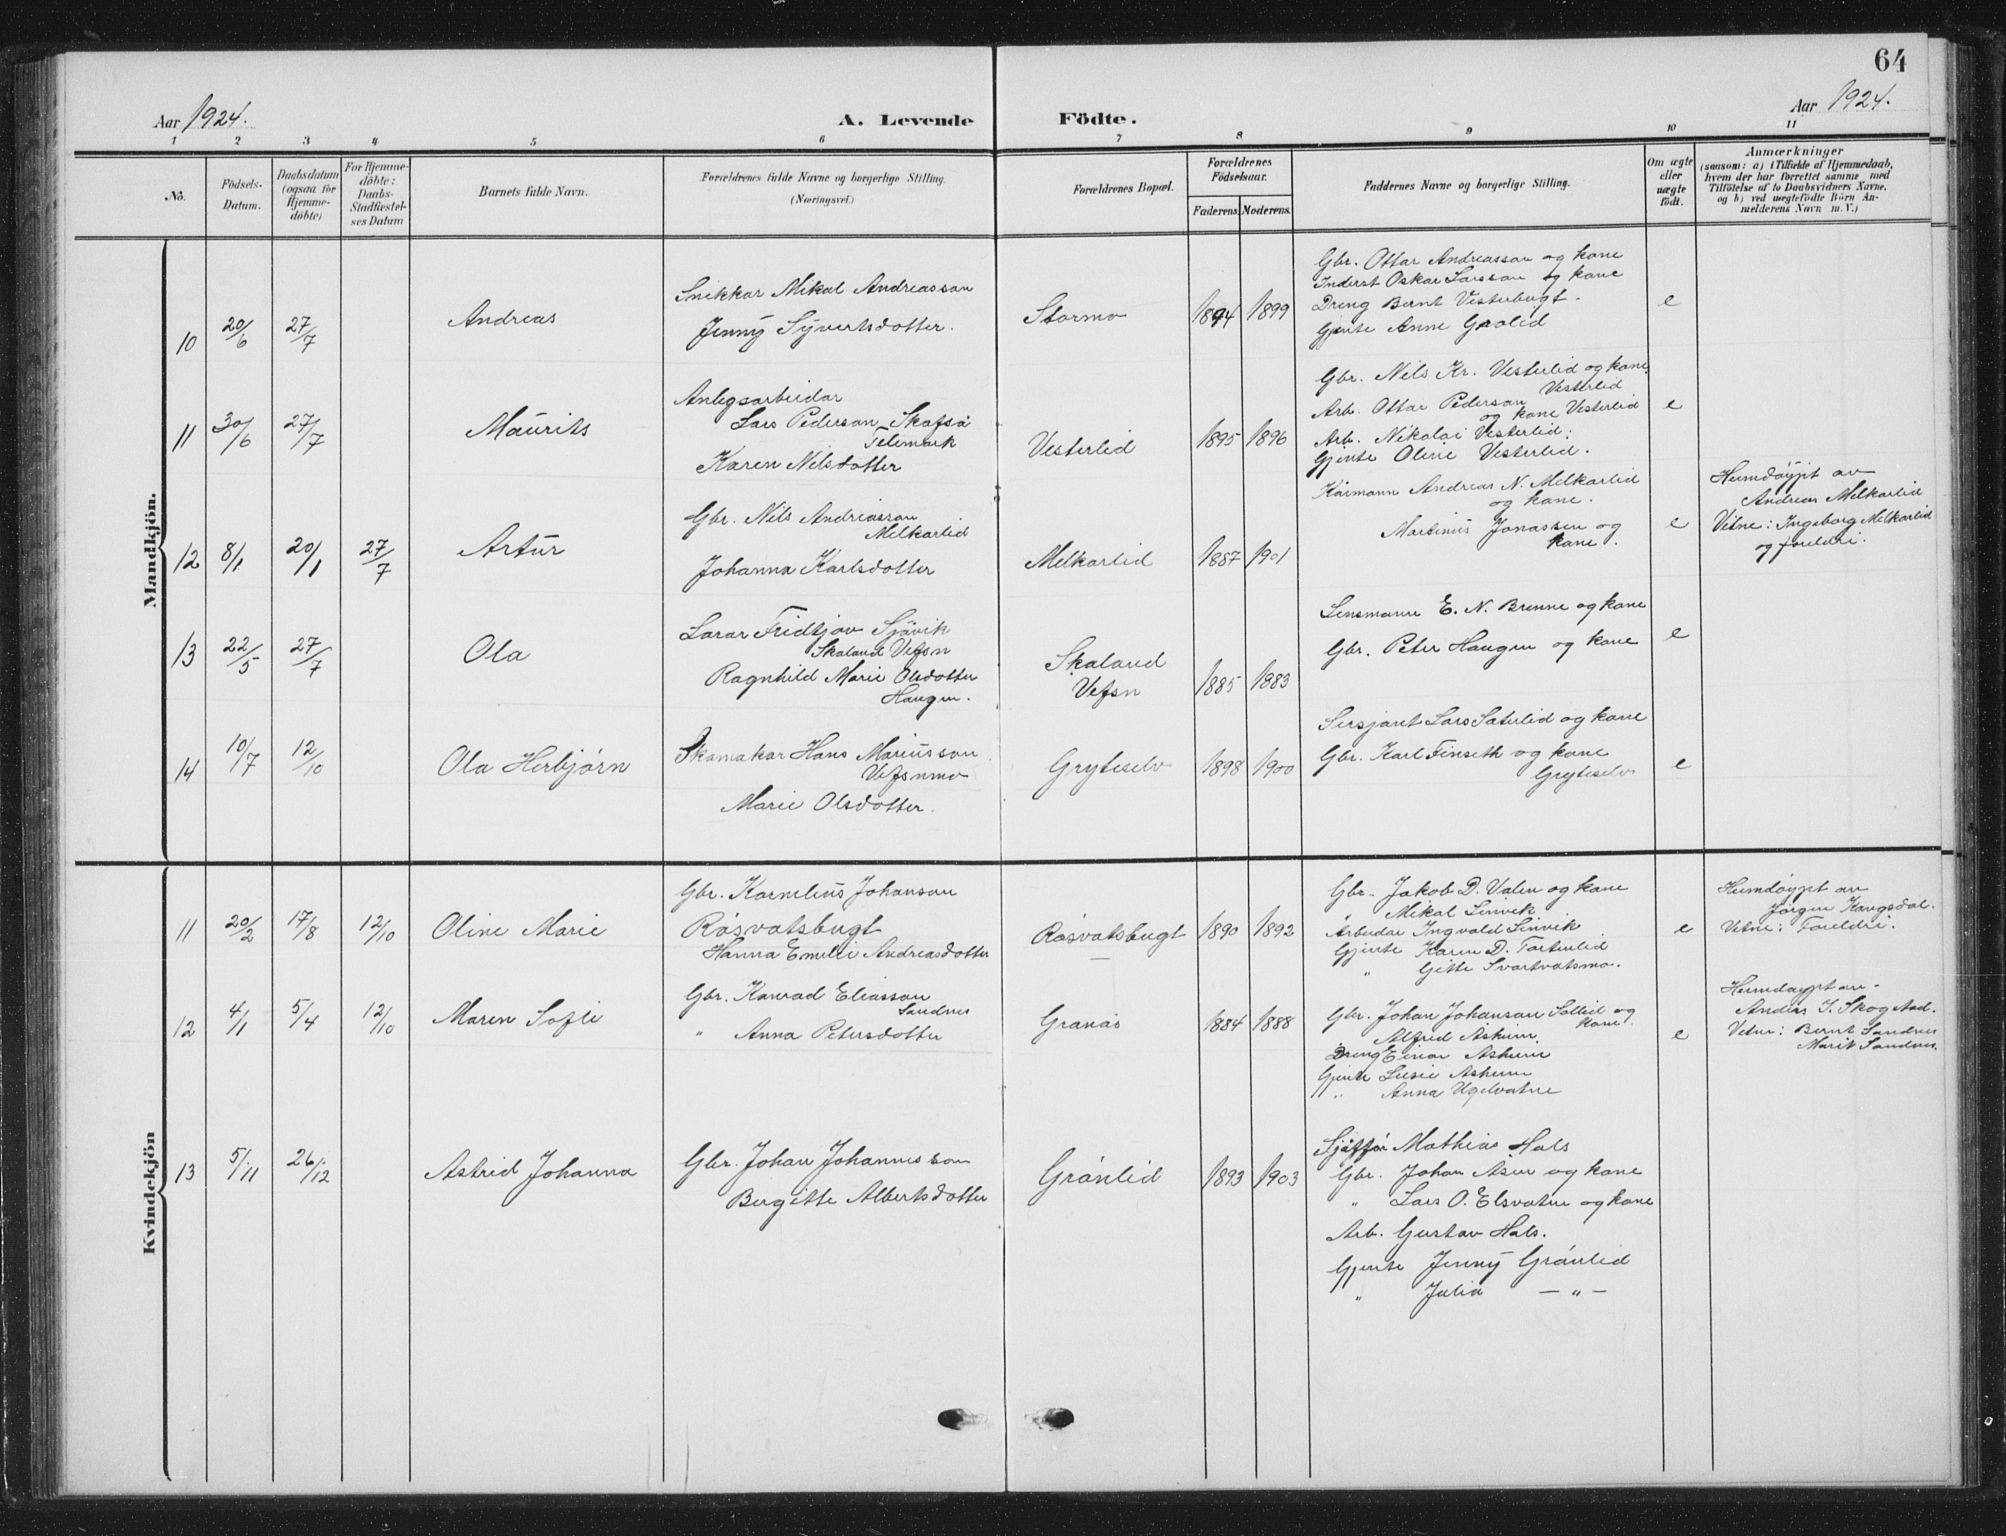 64
Aar 1924.
A. Levende Födte.
Aar 1924.
1 2 3 4 5 6 7 8 9 10 11
No.
Födsels-
Datum.
Daabsdatum
(ogsaa for
Hjemme-
döbte)
For Hjemme-
döbte:
Daabs-
Stadfæstel-
ses Datum
Barnets fulde Navn.
Forældrenes fulde Navne og borgerlige Stilling.
(Næringsvei.)
Forældrenes Bopæl.
Forældrenes
Födselsaar.
Faderens. Moderens.
Faddernes Navne og borgerlige Stilling.
Om ægte
eller
uægte
født.
Anmærkninger
(saasom: a) i Tilfælde af Hjemmedaab,
hvem der har forrettet samme med
Tilföielse af to Daabsvidners Navne,
og b) ved uægtefödte Börn An-
melderens Navn m. V.)
Mandkjön.
10 20/6 27/7 Andreas
Snikkar Mikal Andreasson
Jenny Syvertsdotter.
Stormo 1894 1899
Gbr. Ottar Andreasson og kone
Inderst Oskar Larsson og kone
Dreng Bernt Vesterbugt.
Gjente Anne Grølid
e
11 30/6 27/7 Maurits
Anlegsarbeidar
Lars Pederson Skafså
Telemark
Karen Nilsdotter
Vesterlid 1895 1896
Gbr. Nils Kr. Vesterlid og kone
Vesterlid
Arb. Ottar Pederson
og kone Vesterlid
Arb. Nikolai Vesterlid.
Gjente Oline Vesterlid.
e
12 8/1 20/1 27/7 Artur
Gbr. Nils Andreasson
Melkarlid
Johanna Karlsdotter
Melkarlid 1887 1901
Kårmann Andreas N. Melkarlid
og kone.
Martinus Jonassen og
kone.
e
Heimdøypt av
Andreas Melkarlid
Vitne: Ingeborg Melkarlid
og foreldri.
13 22/5 27/7 Ola
Lærar Fridtjov Sjåvik
Skaland Vefsn
Ragnhild Marie Olsdotter
Haugen.
Skaland
Vefsn
1885 1883
Lensmann E. N. Brenne og kone
Gbr. Peter Haugen og kone
e
14 10/7 12/10 Ola Herbjørn
Skomakar Hans Mariusson
Vefsnmo
Marie Olsdotter.
Gryteselv 1898 1900
Sersjant Lars Sæterlid og kone
Gbr. Karl Finseth og kone
Gryteselv
e
Kvindekjön
11 20/2 17/8 12/10 Oline Marie
Gbr. Kornelius Johanson
Røsvatsbugt
Hanna Emilie Andreasdotter
Røsvatsbugt 1890 1892
Gbr. Jakob D. Valen og kone
Mikal Sinvik
Arbeidar Ingvald Sinvik
Gjente Karen D. Tortenlid
" Gitte Svartvatsmo.
e
Heimdøypt av
Jørgen Kongsdal.
Vitne: Foreldri.
12 4/1 5/4 12/10 Maren Sofie
Gbr. Konrad Eliasson
Sandnes
" Anna Petersdotter
Granås 1884 1888
Gbr. Johan Johanson Sollid og
kone.
Alfred Askum.
Dreng Einar Askum
Gjente Susie Askum
" Anna Ugelvatne
e
Heimdøypt av
Anders J. Skog Aad.
Vitne: Bernt Sandnes
Marit Sandnes.
13 5/11 26/12 Astrid Johanna
Gbr. Johan Johannesson
Bergitte Albertsdotter
Grønlid 1893 1903
Sjåffør Mathias Hals
Gbr. Johan Åsen og kone
" Lars O. Elsvatne og kone
Arb. Gustav Hals.
Gjente Jenny Grønlid
" Julia — " —